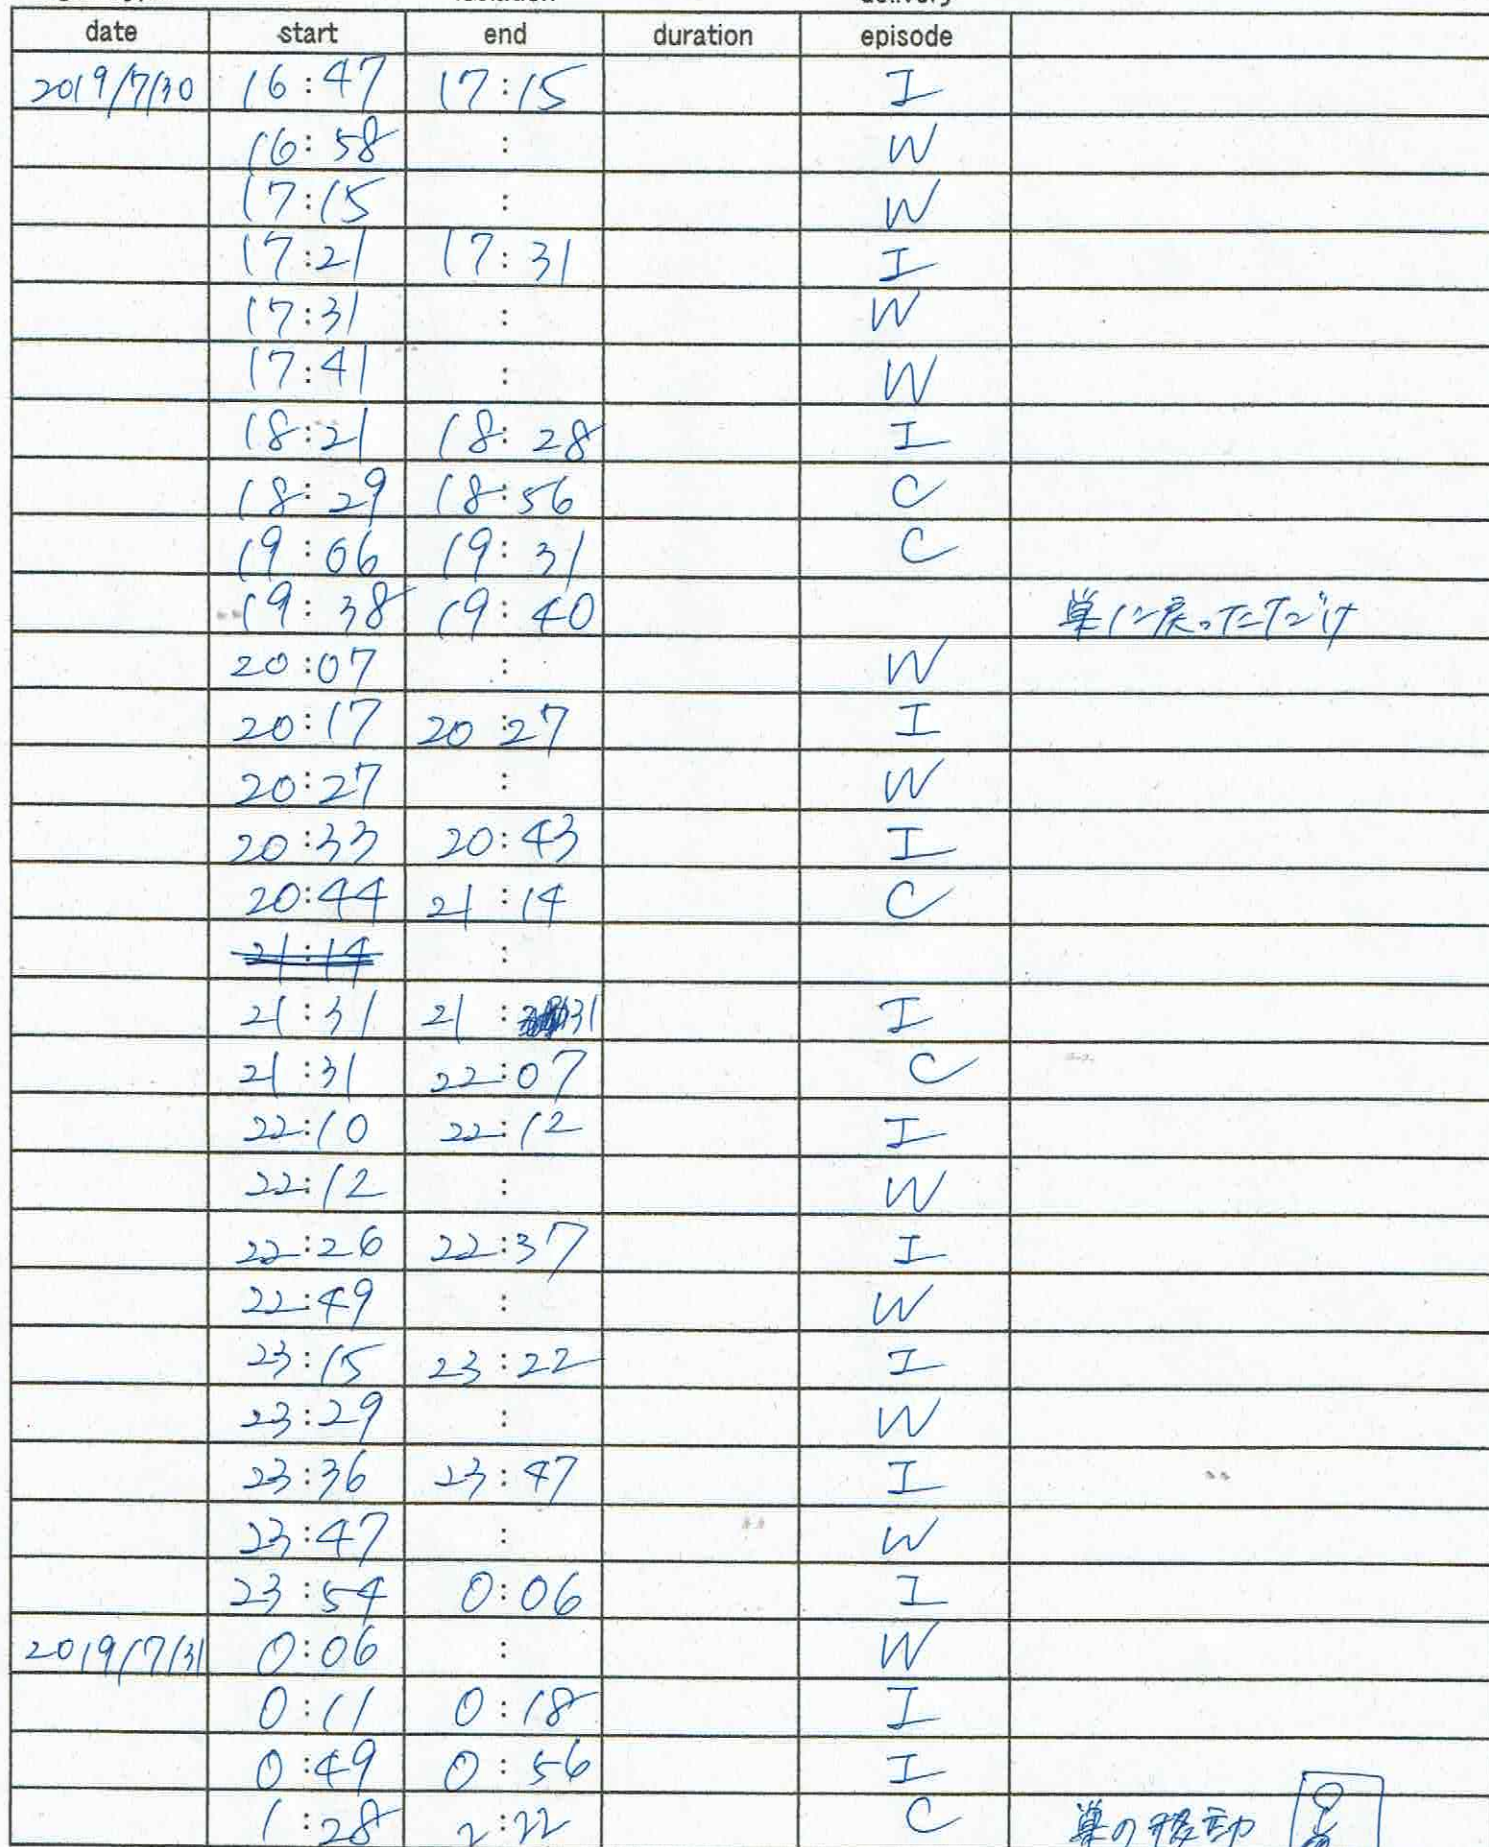 date start end duration episode
2019/7/30 16:47 17:15 I
16:58 : W
17:15 : W
17:21 17:31 I
17:31 : W
17:41 : W
18:21 18:28 I
18:29 18:56 C
19:06 19:31 C
19:38 19:40 巣に戻っただけ
20:07 : W
20:17 20:27 I
20:27 : W
20:33 20:43 I
20:44 21:14 C
21:14 :
21:31 21:31 I
21:31 22:07 C
22:10 22:12 I
22:12 : W
22:26 22:37 I
22:49 : W
23:15 23:22 I
23:29 : W
23:36 23:47 I
23:47 : W
23:54 0:06 I
2019/7/31 0:06 : W
0:11 0:18 I
0:49 0:56 I
1:28 2:22 C 巣の移動